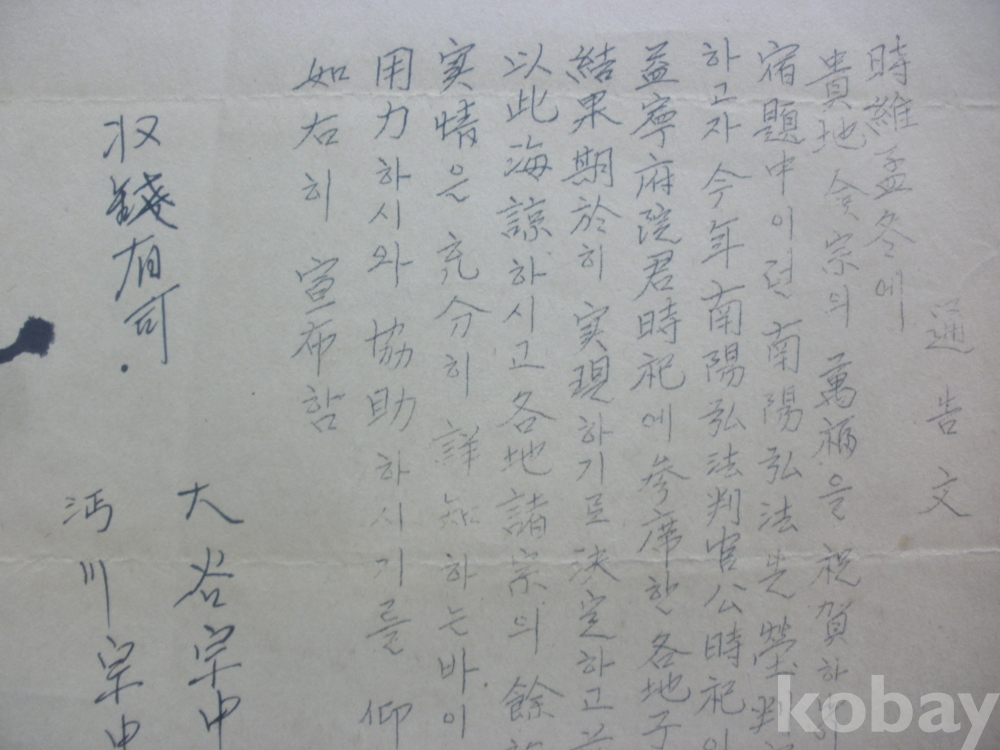 通告文
時維孟冬에
貴地 僉宗의 萬福을 祝賀하
宿題中이던 南陽弘法先塋
하고자 今年 南陽弘法判官公時祀
益寧府院君時祀에 參席한 各地子
結果期於히 实現하기로 決定하고
以此海諒하시고 各地諸宗의 餘
实情은 充分히 詳知하는바이
用力하시와 協助하시기를 仰
如右히 宣布함
大谷宗中
沔川宗中
収錢有司.
kobay